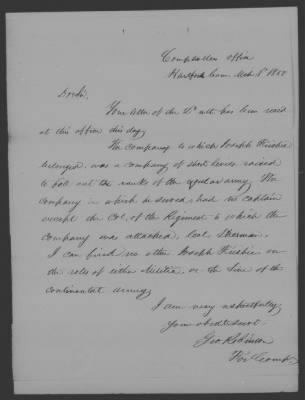 Comptrollers Office
Hartford Conn. Mch 1st 1850
Dr Sir,
Your letter of the ult. has been recd
at this office this day.
The company to which Joseph Frisbie
belonged, was a company of short levies raised
to fill out the ranks of the regular army. The
company in which he served, had no captain
except the Col. of the Regiment to which the
company was attached, Col. Sherman.
I can find no other Joseph Frisbie on
the roles of either Militia, or the Line of the
continental army,
I am very respectfully
your obedt servt.
Geo. Robinson
For Compt